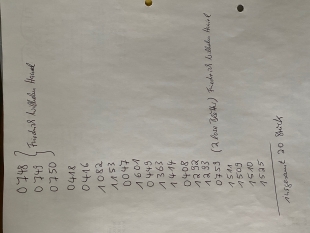 0748
0749 } Friedrich Wilhelm Hensel
0750
0418
0416
1082
1153
0047
1601
0449
1363
1414
0408
1292
1293
0759 (2 lose Blätter) Friedrich Wilhelm Hensel
1511
1509
1510
1525
insgesamt 20 Stück